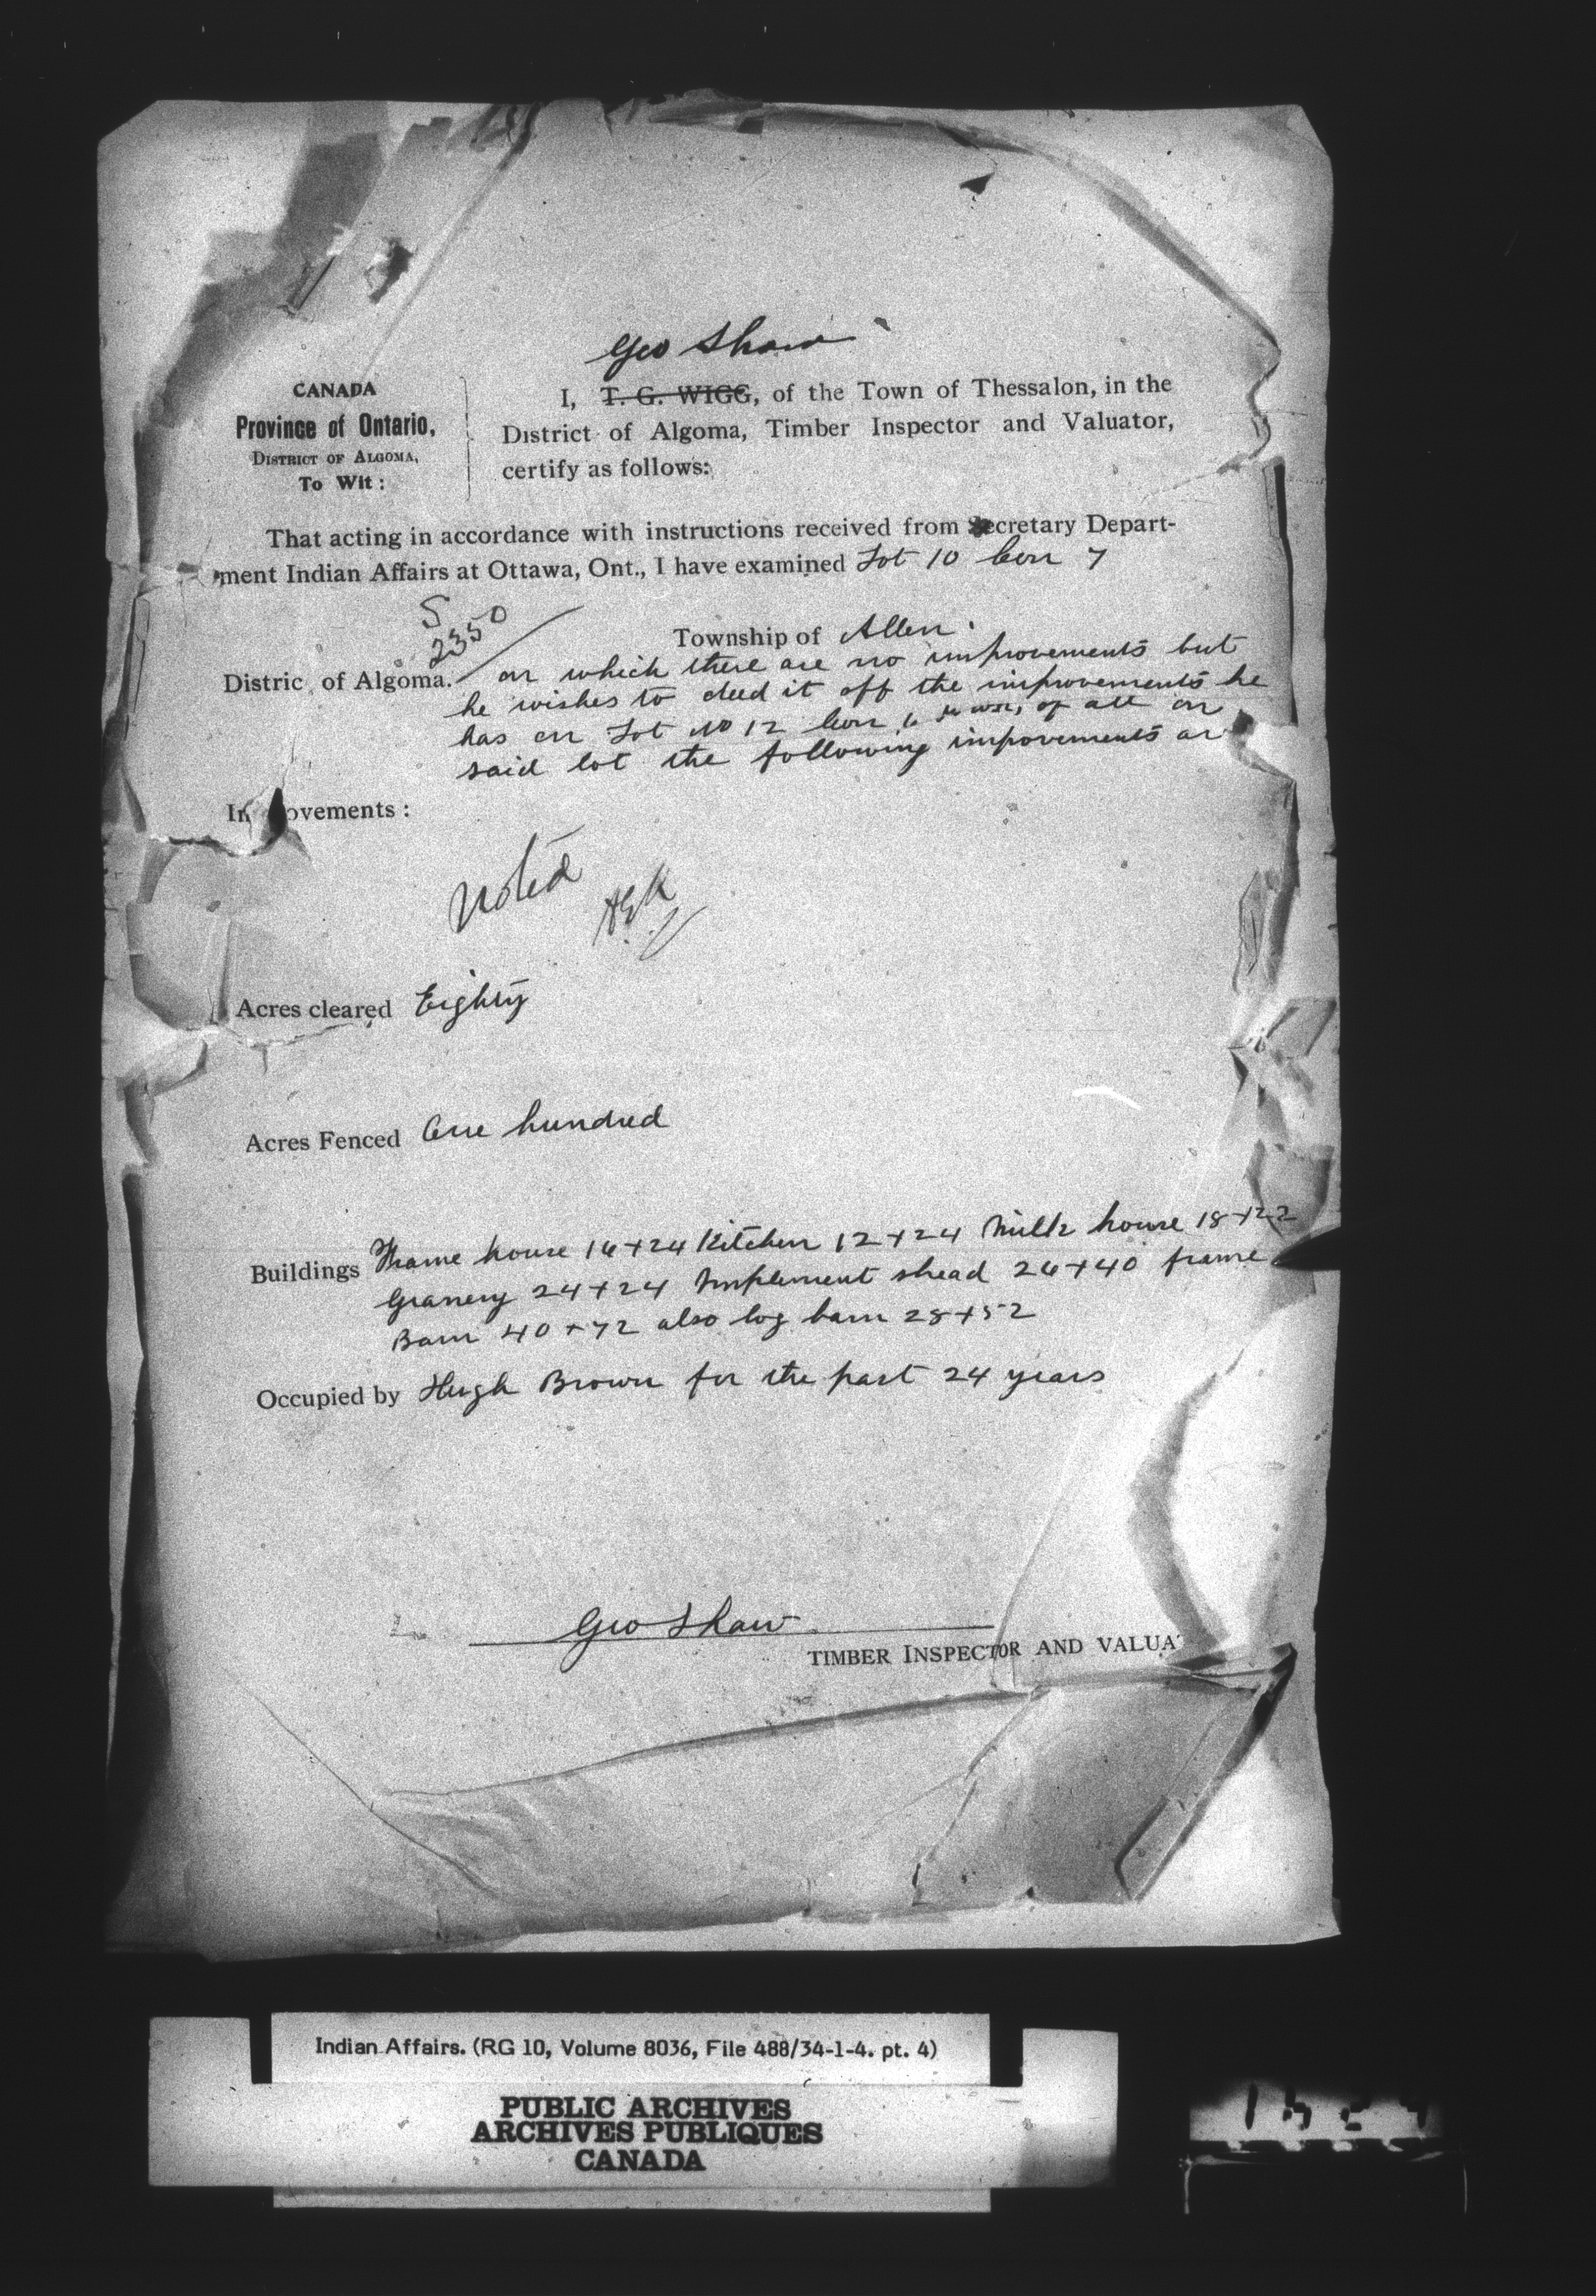 Geo Shaw
CANADA
Province of Ontario,
DISTRICT OF ALGOMA,
To Wit:
I, T. G. WIGG, of the Town of Thessalon, in the
District of Algoma, Timber Inspector and Valuator,
certify as follows:
That acting in accordance with instructions received from Secretary Depart-
ment Indian Affairs at Ottawa, Ont., I have examined Lot 10 Con 7
S
2350
Township of Allen.
Distric of Algoma. on which there are no improvements but
he wishes to deed it off the improvements he
has on Lot No 12 Con 6 of all on
said lot the following impovements ar
Im ovements:
Noted
Acres cleared Eighty
Acres Fenced One hundred
Buildings Frame house 16+24 Kitchen 12+24 Milk house 18+22
Granery 24+24 Implement shead 26+40 frame
Barn 40+72 also log barn 28+52
Occupied by Hugh Brown for the past 24 years
Geo Shaw
TIMBER INSPECTOR AND VALUA
Indian Affairs. (RG 10, Volume 8036, File 488/34-1-4. pt. 4)
PUBLIC ARCHIVES
ARCHIVES PUBLIQUES
CANADA